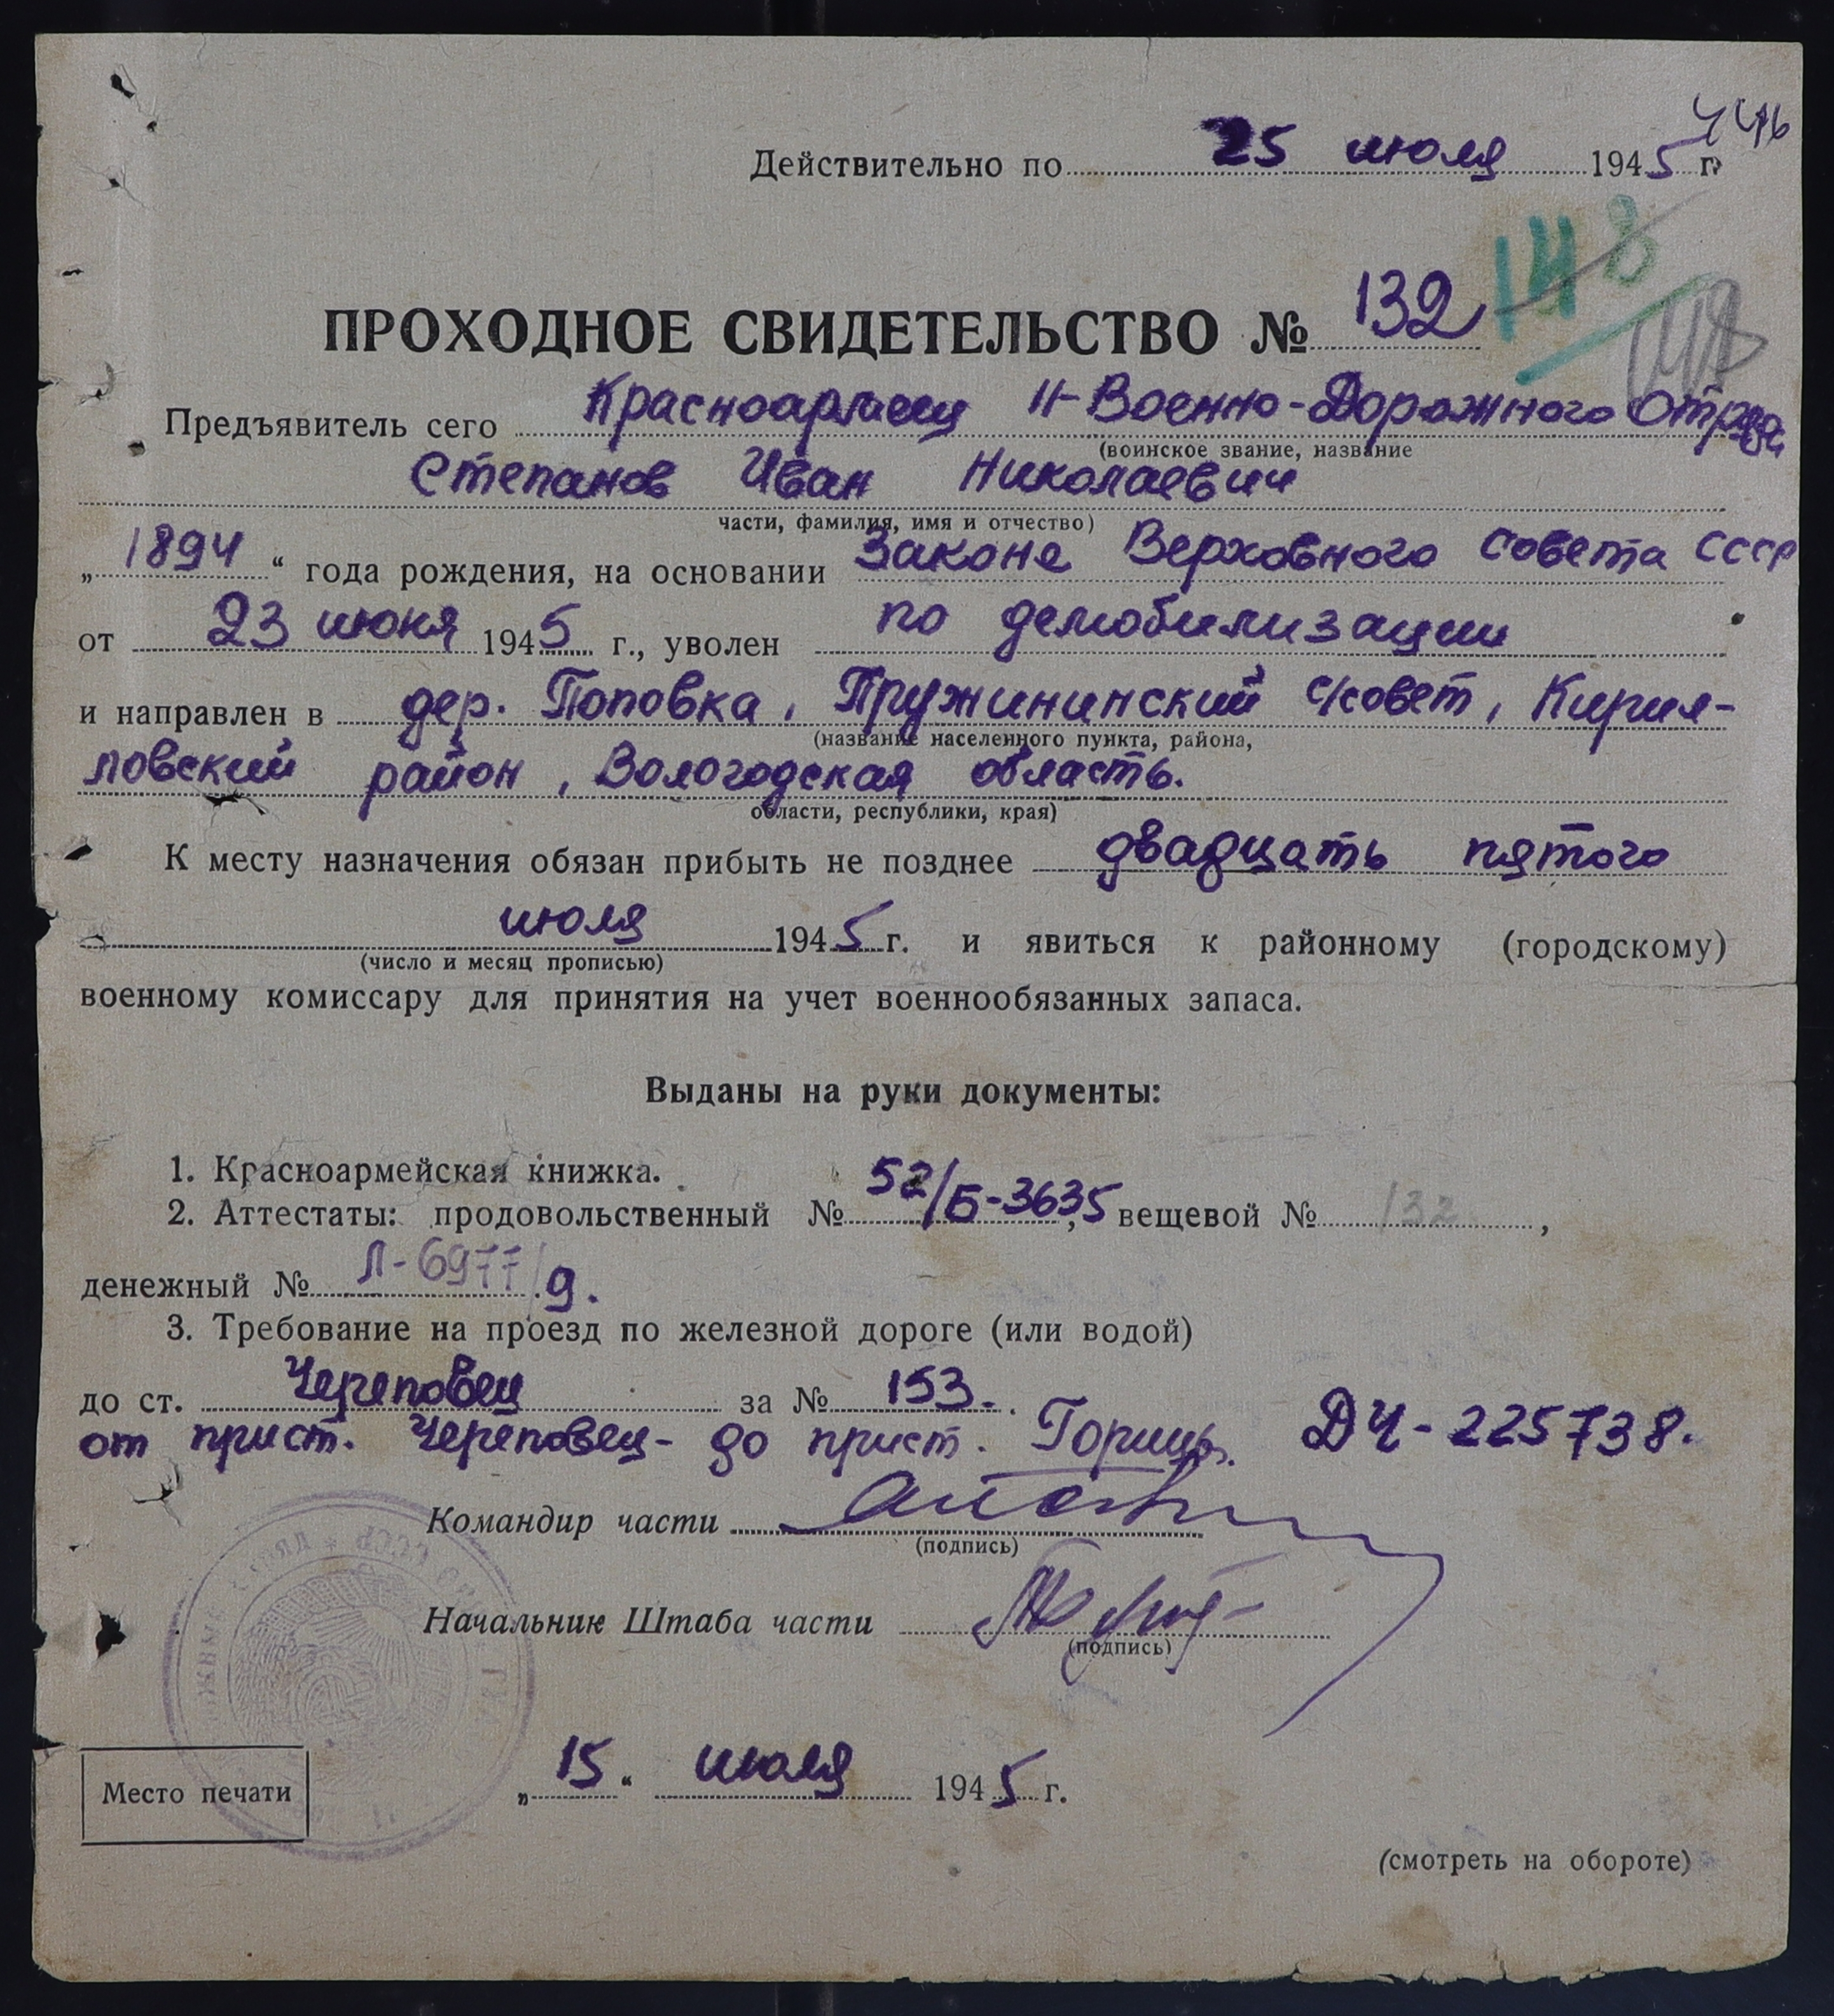 446
Действительно по 25 июля 1945 г.
148
ПРОХОДНОЕ СВИДЕТЕЛЬСТВО № 132
Предъявитель сего Красноармеец 11-Военно-Дорожного Отряда
(воинское звание, название
Степанов Иван Николаевич
части, фамилия, имя и отчество)
„1894“ года рождения, на основании Закона Верховного Совета СССР
от 23 июня 1945 г., уволен по демобилизации
и направлен в дер. Поповка, Пружининский с/совет, Кирил-
(название населенного пункта, района,
ловский район, Вологодская область.
области, республики, края)
К месту назначения обязан прибыть не позднее двадцать пятого
июля 1945 г. и явиться к районному (городскому)
(число и месяц прописью)
военному комиссару для принятия на учет военнообязанных запаса.
Выданы на руки документы:
1. Красноармейская книжка.
2. Аттестаты: продовольственный № 52/Б-3635, вещевой № 132,
денежный № Л-6977/9.
3. Требование на проезд по железной дороге (или водой)
до ст. Череповец за № 153.
от прист. Череповец - до прист. Горицы. ДЧ-225738.
Командир части
(подпись)
Начальник Штаба части
(подпись)
Место печати
„15“ июля 1945 г.
(смотреть на обороте)